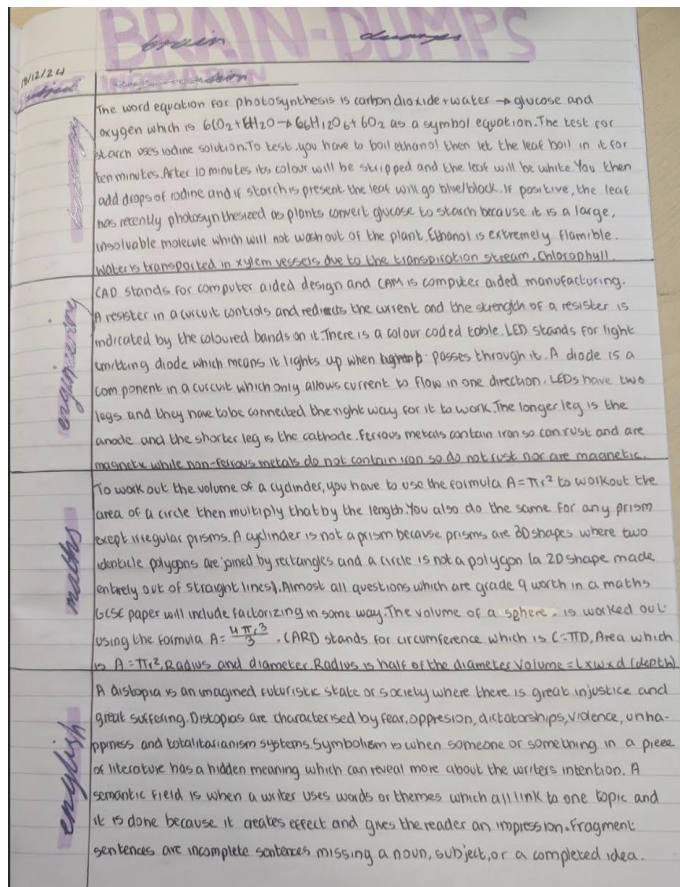 BRAIN-DUMPS
brain dumps
19/12/24
subject
The word equation for photosynthesis is carbon dioxide + water → glucose and
oxygen which is 6CO2 + 6H2O → C6H12O6 + 6O2 as a symbol equation. The test for
starch uses iodine solution. To test, you have to boil ethanol then let the leaf boil in it for
ten minutes. After 10 minutes its colour will be stripped and the leaf will be white. You then
add drops of iodine and if starch is present the leaf will go blue/black. If positive, the leaf
has recently photosynthesized as plants convert glucose to starch because it is a large,
insolvable molecule which will not wash out of the plant. Ethanol is extremely flamible.
Water is transported in xylem vessels due to the transpiration stream. Chlorophyll.
engineering
CAD stands for computer aided design and CAM is computer aided manufacturing.
A resister in a curcuit controls and redirects the current and the strength of a resister is
indicated by the coloured bands on it. There is a colour coded table. LED stands for light
emitting diode which means it lights up when passes through it. A diode is a
component in a curcuit which only allows current to flow in one direction. LEDs have two
legs and they have to be connected the right way for it to work. The longer leg is the
anode and the shorter leg is the cathode. Ferrous metals contain iron so can rust and are
magnetic while non-ferrous metals do not contain iron so do not rust nor are magnetic.
maths
To work out the volume of a cylinder, you have to use the formula A = πr² to workout the
area of a circle then multiply that by the length. You also do the same for any prism
exept irregular prisms. A cylinder is not a prism because prisms are 3D shapes where two
identicle polygons are joined by rectangles and a circle is not a polygon (a 2D shape made
entirely out of straight lines). Almost all questions which are grade 9 worth in a maths
GCSE paper will include factorizing in some way. The volume of a sphere. is worked out
using the formula A = 4πr³/3. CARD stands for circumference which is C=πD, Area which
is A = πr², Radius and diameter. Radius is half of the diameter. Volume = L x w x d (depth)
english
A distopia is an imagined futuristic state or society where there is great injustice and
great suffering. Distopias are characterised by fear, oppresion, dictatorships, violence, unha-
ppiness and totalitarianism systems. Symbolism is when someone or something in a piece
of literature has a hidden meaning which can reveal more about the writers intention. A
semantic field is when a writer uses words or themes which all link to one topic and
it is done because it creates effect and gives the reader an impression. Fragment
sentences are incomplete sentences missing a noun, subject, or a completed idea.